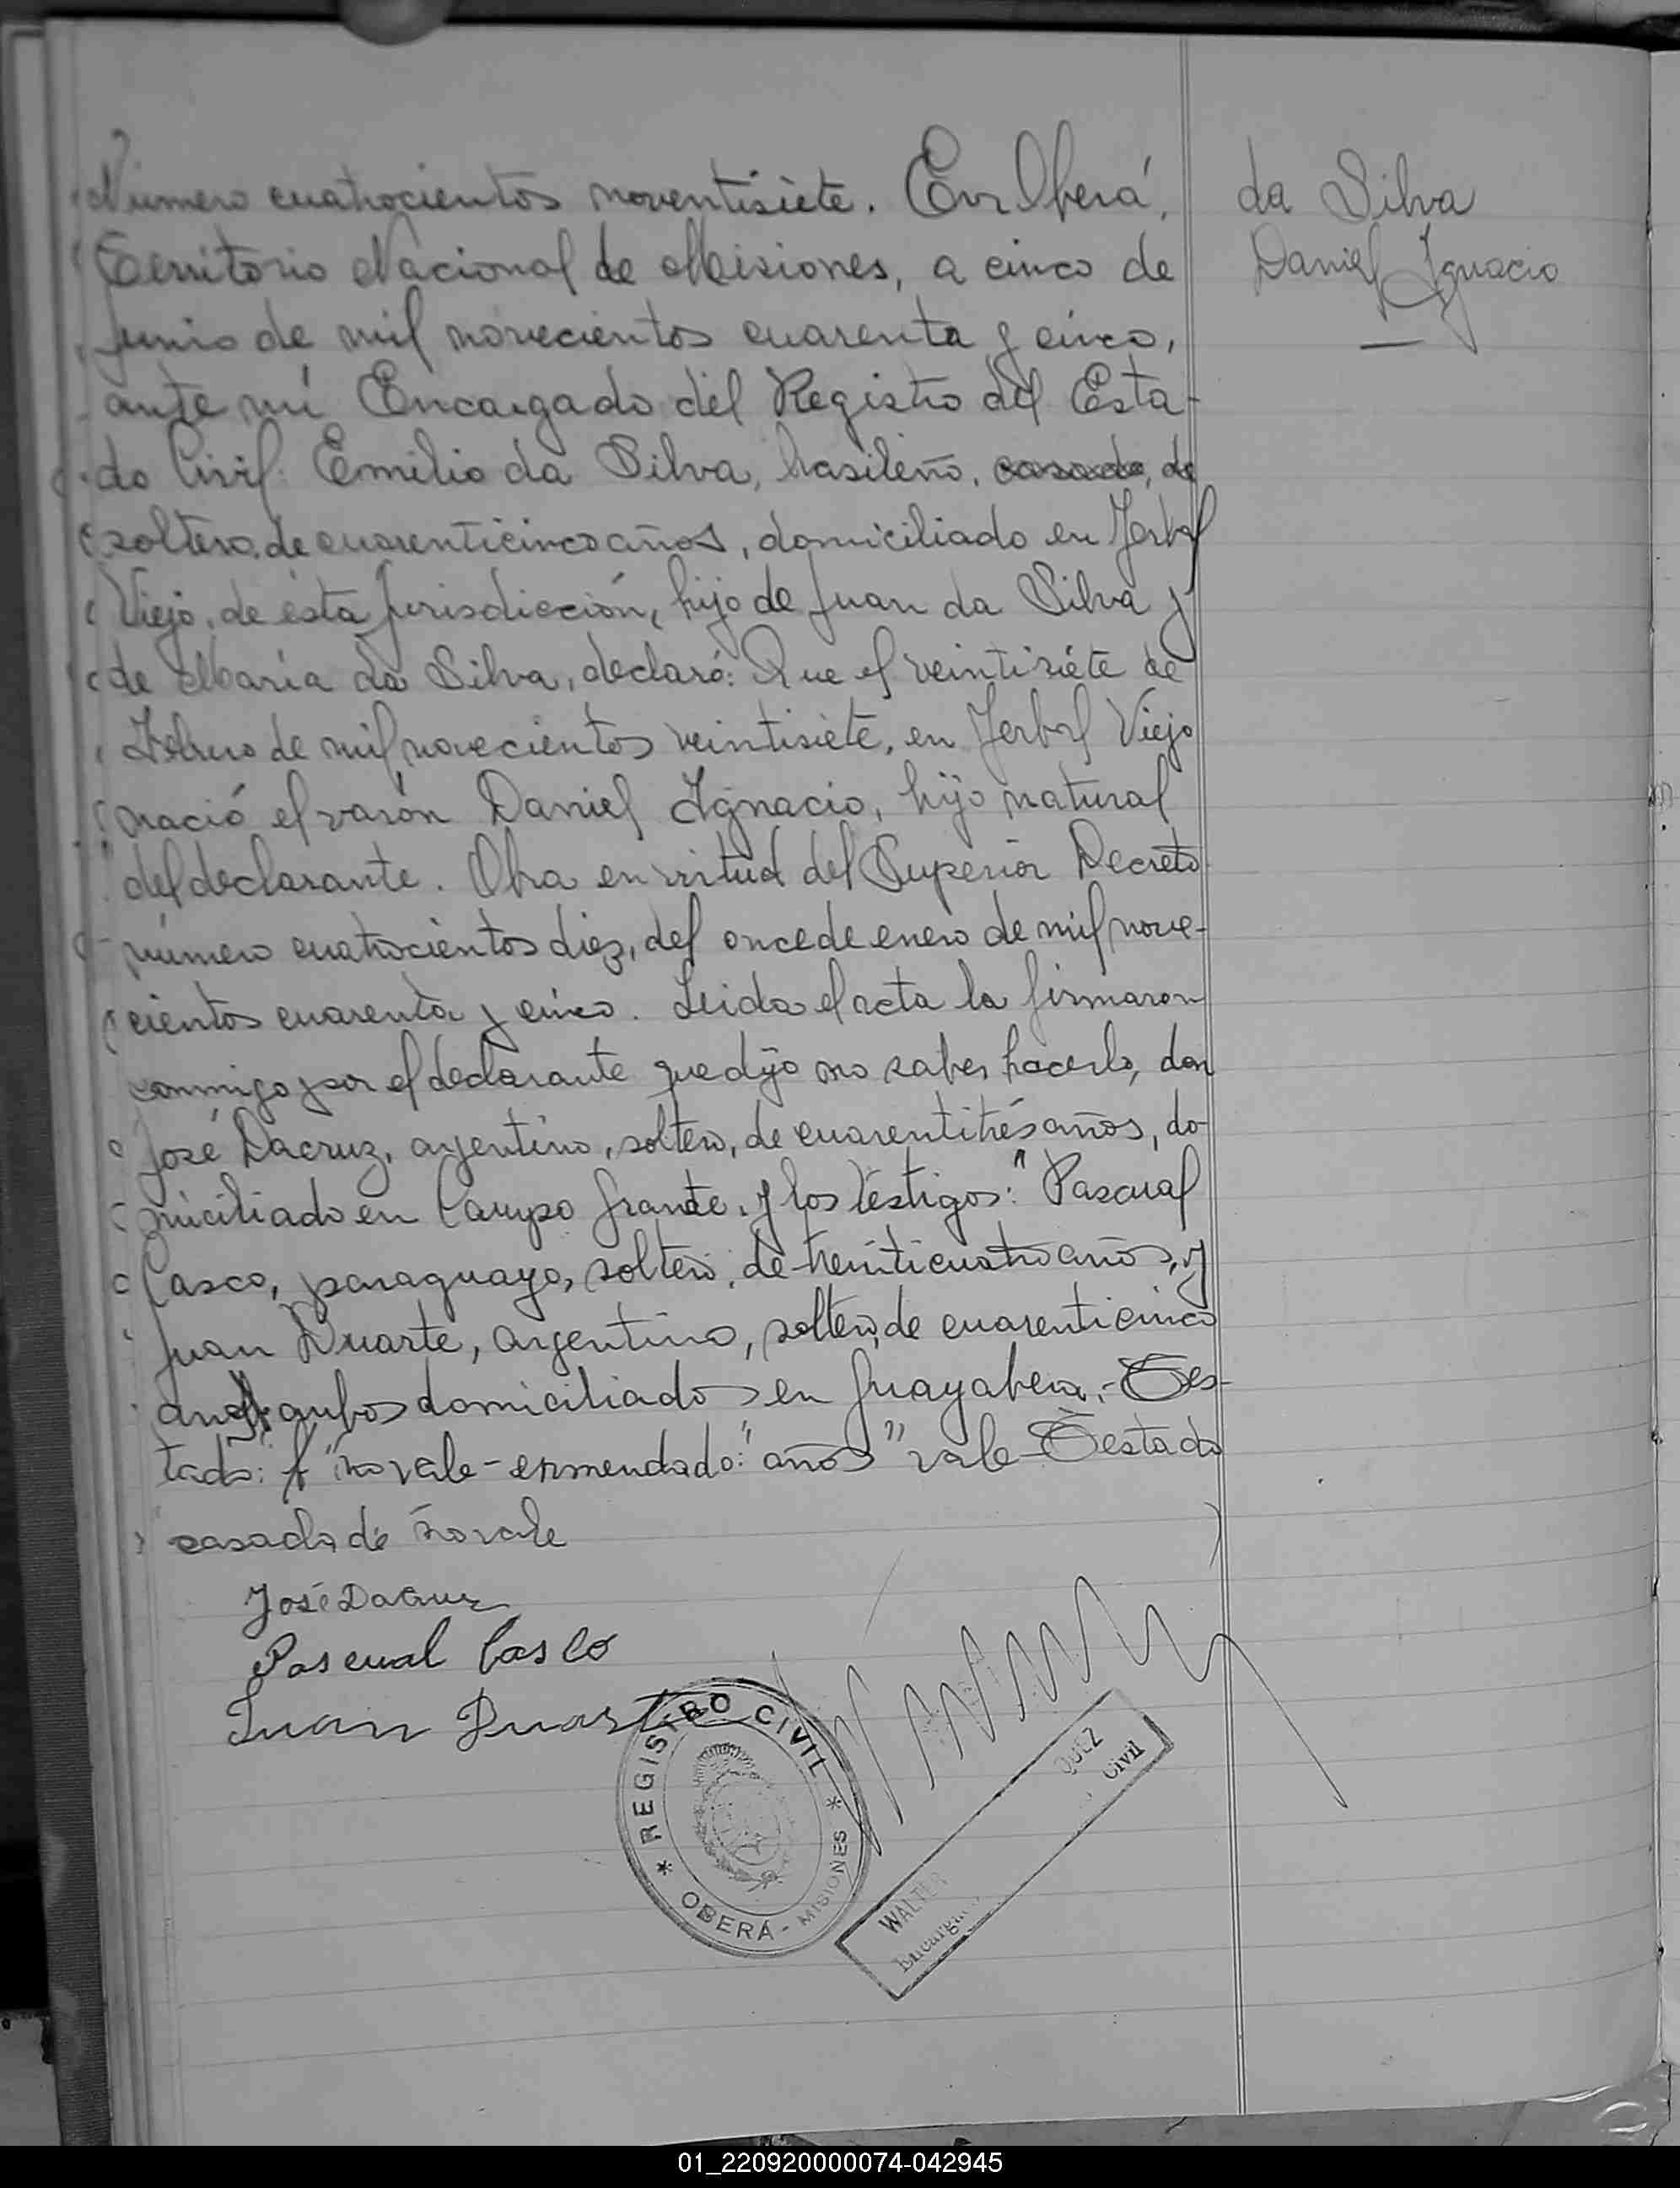 Número cuatrocientos noventisiete. En Oberá,
Territorio Nacional de Misiones, a cinco de
junio de mil novecientos cuarenta y cinco,
ante mí Encargado del Registro del Esta-
do Civil: Emilio da Silva, brasileño, casado, de
soltero, de cuarenticinco años, domiciliado en Yerbal
Viejo, de ésta jurisdicción, hijo de Juan da Silva y
de María da Silva, declaró: Que el veintisiete de
Febrero de mil novecientos veintisiete, en Yerbal Viejo
nació el varón Daniel Ignacio, hijo natural
del declarante. Obra en virtud del Superior Decreto
número cuatrocientos diez, del once de enero de mil nove-
cientos cuarenta y cinco. Leida el acta la firmaron
conmigo por el declarante que dijo no saber hacerlo, don
José Dacruz, argentino, soltero, de cuarentitrés años, do-
miciliado en Campo Grande, y los testigos: Pascual
Casco, paraguayo, soltero, de treinticuatro años, y
Juan Duarte, argentino, soltero, de cuarenticinco
años, ambos domiciliados en Guayabera.- Tes-
tado: no vale - enmendado: "años" vale - Testado
casado, de no vale
José Dacruz
Pascual Casco
Juan Duarte
da Silva
Daniel Ignacio
* REGISTRO CIVIL *
OBERÁ - MISIONES
WALTER QUEZ
Encarga Civil
01_220920000074-042945